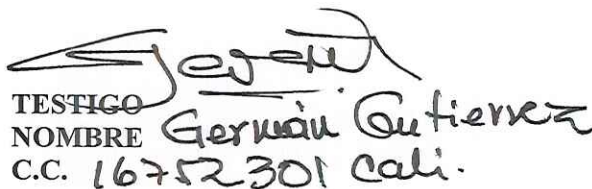 TESTIGO
NOMBRE Germán Gutierrez
C.C. 16752301 Cali.